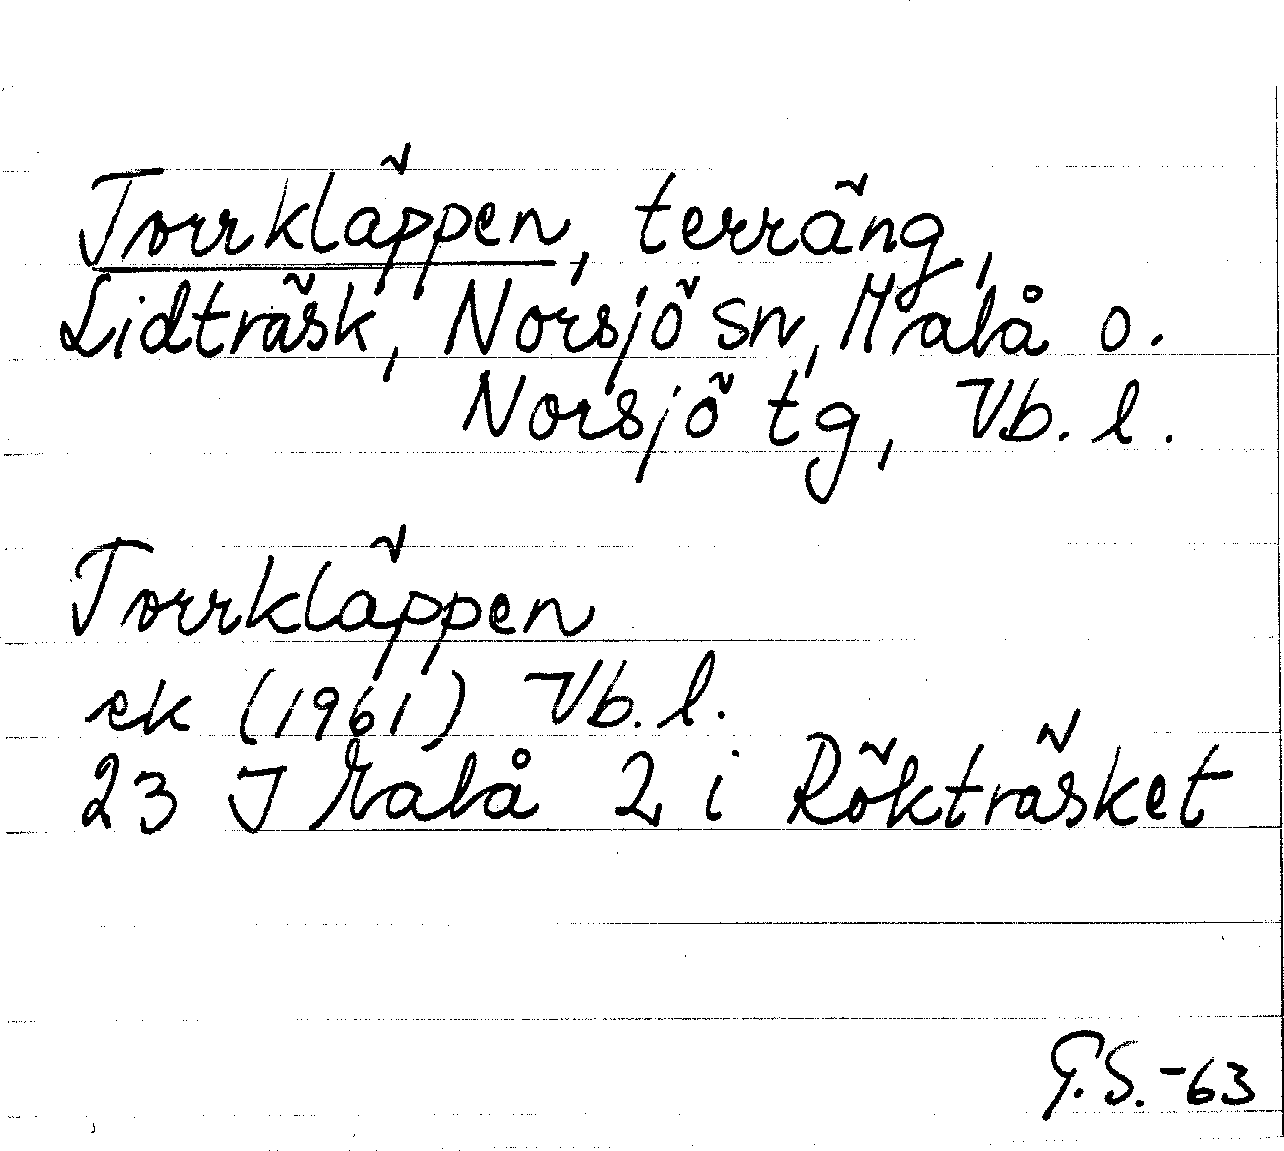 Torrkläppen, terräng,
Lidträsk, Norsjö sn, Malå o.
Norsjö tg, Vb. l.
Torrkläppen
ek (1961) Vb. l.
23 J Malå 2 i Rökträsket
G.S.-63